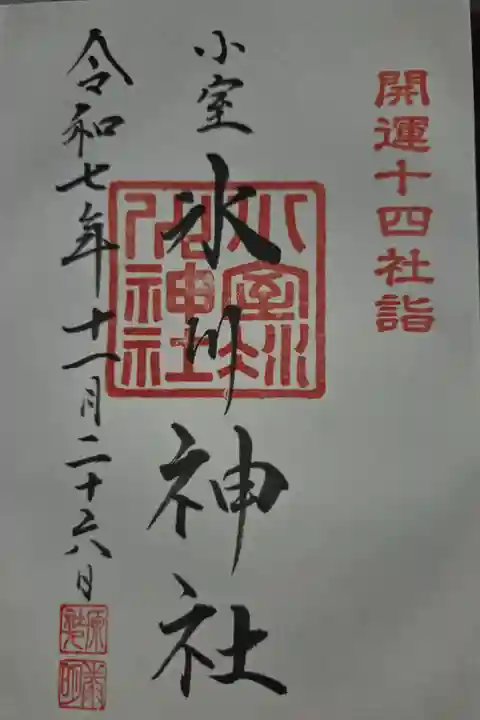 開運十四社詣
小室
氷川神社
令和七年十一月二十六日
小室氷川神社